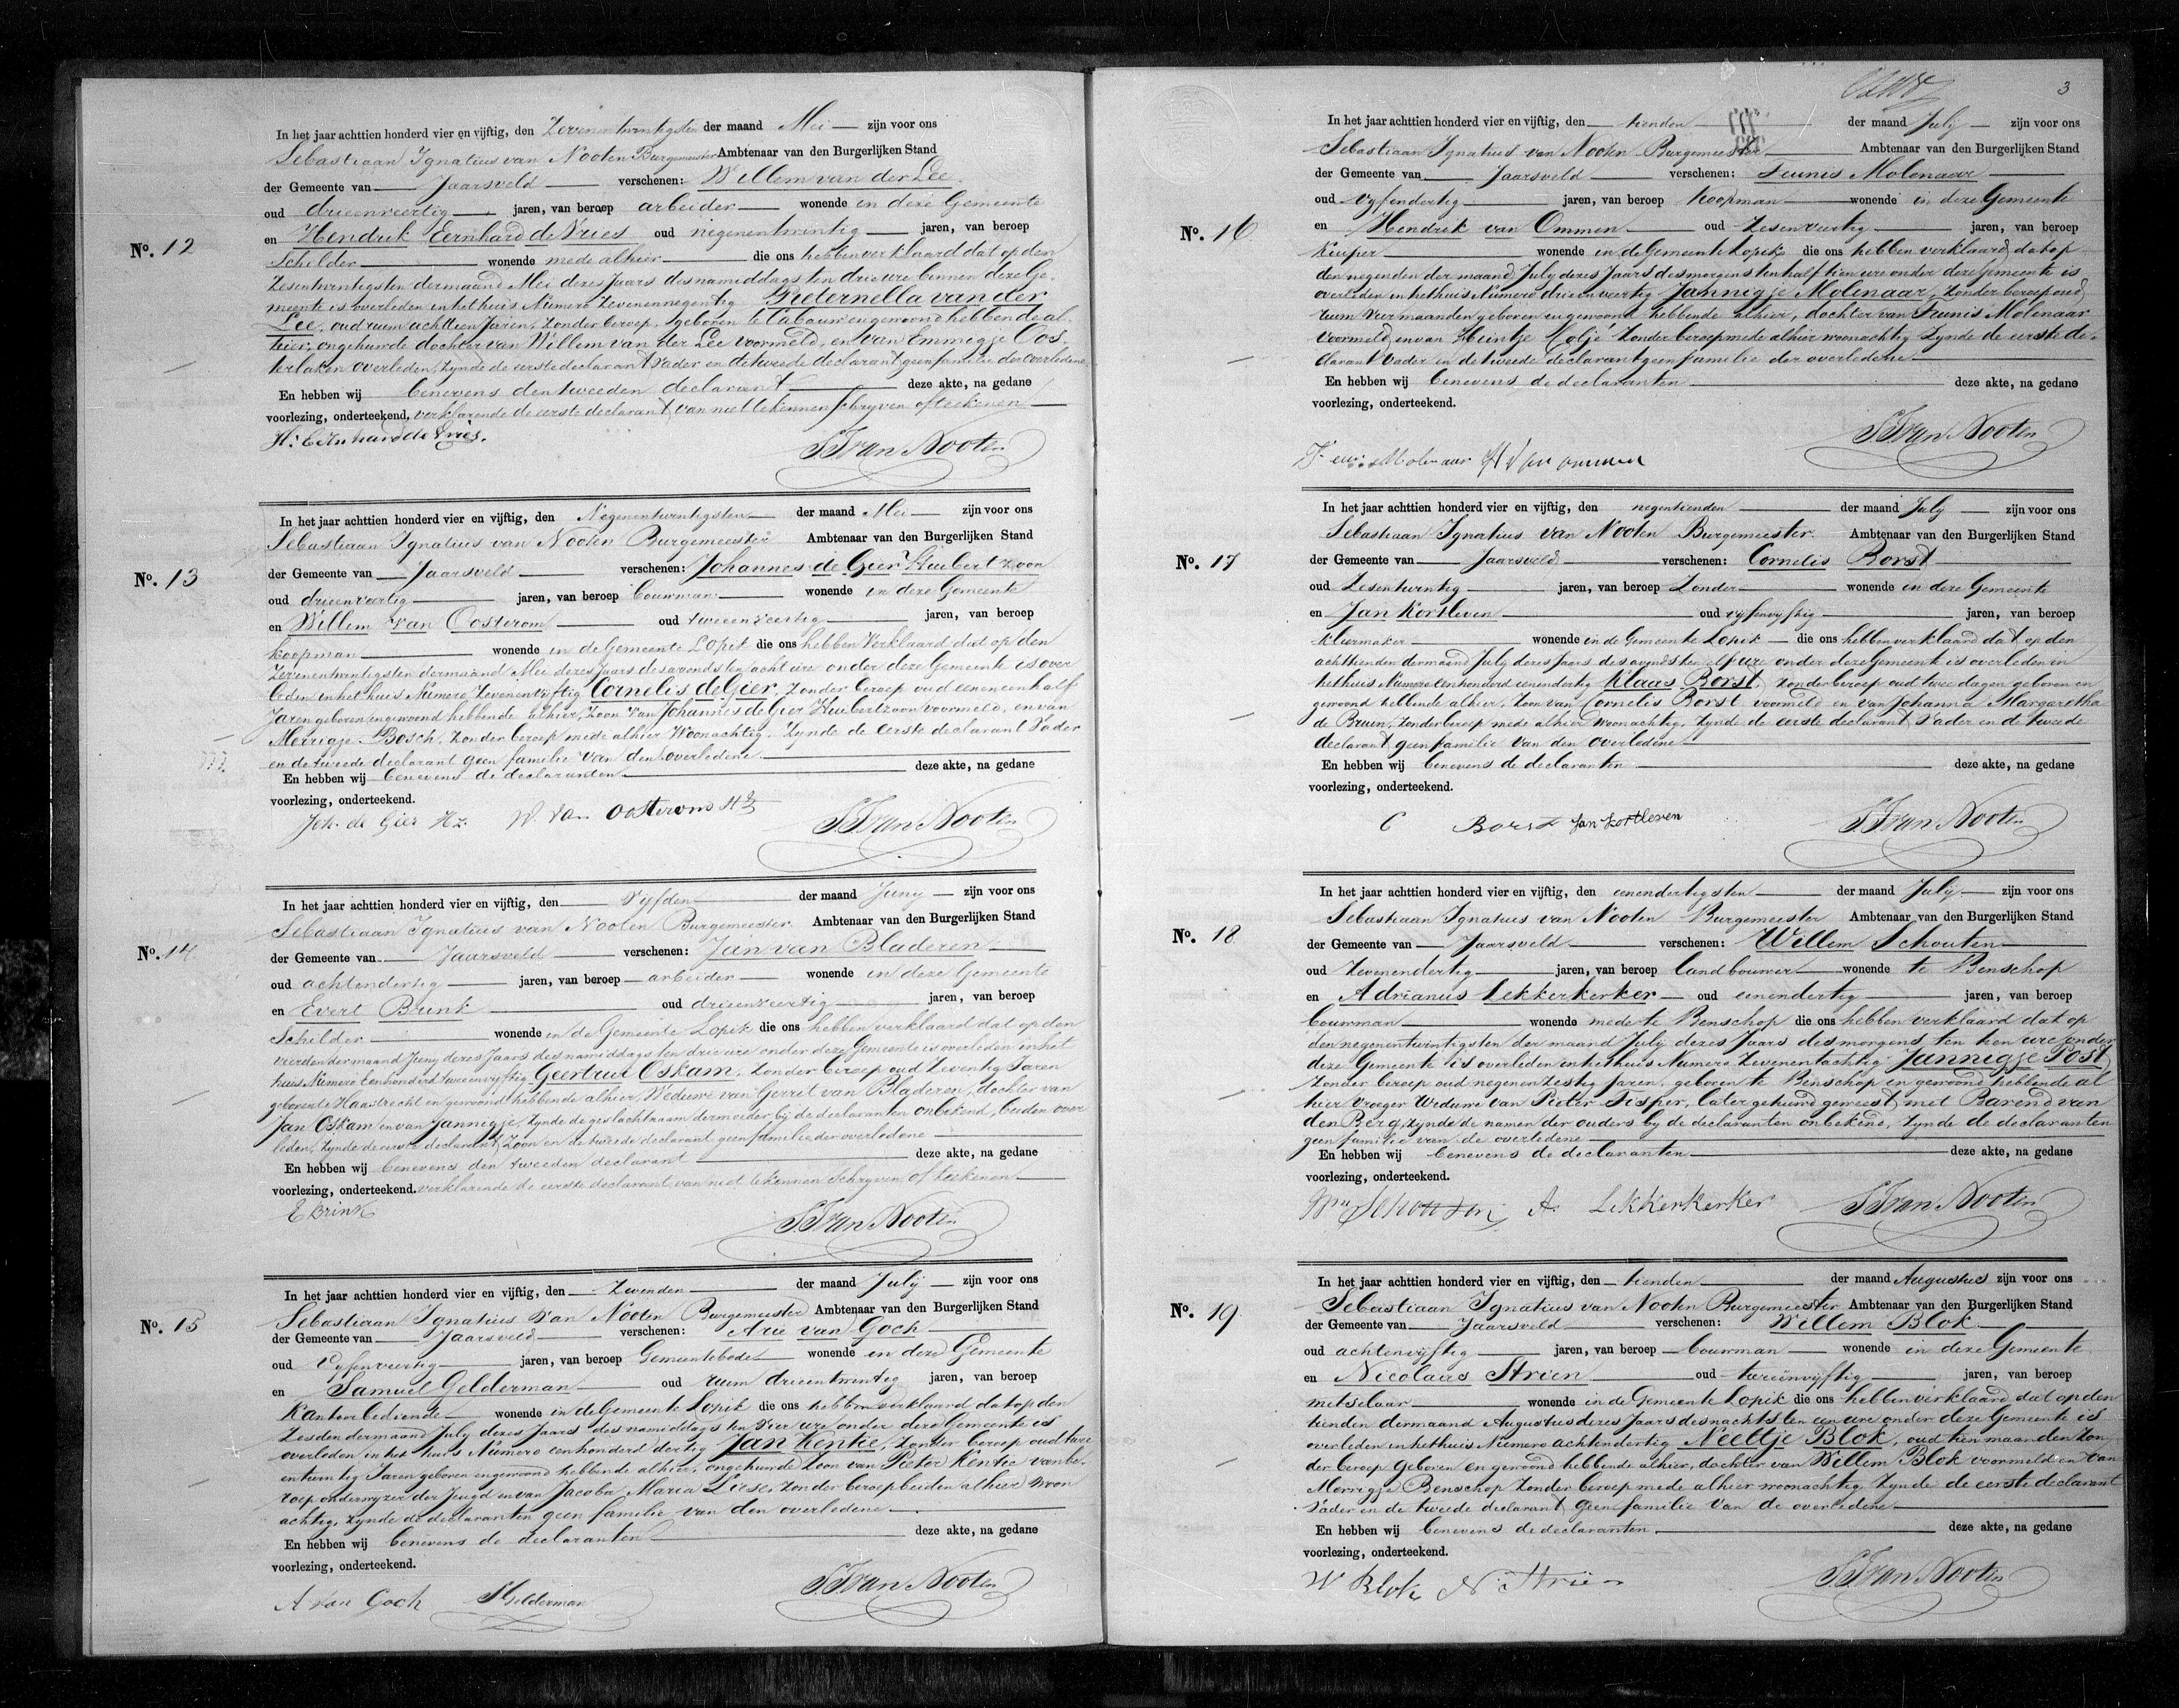 In het jaar achttien honderd vier en vijftig, den Zevenentwintigsten der maand Mei zijn voor ons
Sebastiaan Ignatius van Nooten Burgemeester Ambtenaar van den Burgerlijken Stand
der Gemeente van Jaarsveld verschenen: Willem van der Lee
oud drieenveertig jaren, van beroep arbeider wonende in deze Gemeente
No. 12
en Hendrik Eernhard de Vries oud negenentwintig jaren, van beroep
Schilder wonende mede alhier die ons hebben verklaard dat op den
Zesentwintigsten der maand Mei dezes Jaars des namiddags ten drie ure binnen deze Ge-
meente is overleden in het huis Numero Zevenennegentig Pieternella van der
Lee, oud ruim achttien Jaren, Zonder beroep, geboren te Cabauw en gewoond hebbende al-
hier, ongehuwde dochter van Willem van der Lee voormeld, en van Emmigje Oos-
terlaken overleden, Zynde de eerste declarant Vader en de tweede declarant geen familie der overledene
En hebben wij benevens den tweeden declarant deze akte, na gedane
voorlezing, onderteekend, verklarende de eerste declarant van niet te kunnen schryven of teekenen
H. Eernhard de Vries.
SIvan Nooten
In het jaar achttien honderd vier en vijftig, den Negenentwintigsten der maand Mei zijn voor ons
Sebastiaan Ignatius van Nooten Burgemeester Ambtenaar van den Burgerlijken Stand
No. 13
der Gemeente van Jaarsveld verschenen: Johannes de Gier Huibertzoon
oud drieenveertig jaren, van beroep bouwman wonende in deze Gemeente
en Willem van Oosterom oud tweeenveertig jaren, van beroep
koopman wonende in de Gemeente Lopik die ons hebben Verklaard dat op den
Zevenentwintigsten der maand Mei dezes Jaars des avonds ten acht ure onder deze Gemeente is over
leden in het huis Numero Zevenenvyftig Cornelis de Gier, Zonder beroep oud een en een half
Jaren geboren en gewoond hebbende alhier, Zoon van Johannes de Gier Huibertzoon voormeld, en van
Merrigje Bosch, Zonder beroep mede alhier Woonachtig, Zynde de eerste declarant Vader
en de tweede declarant geen familie van den overledene.
En hebben wij benevens de declaranten deze akte, na gedane
voorlezing, onderteekend.
Joh. de Gier Hz. W. van Oosterom
SIvan Nooten
In het jaar achttien honderd vier en vijftig, den Vijfden der maand Juny zijn voor ons
Sebastiaan Ignatius van Nooten Burgemeester Ambtenaar van den Burgerlijken Stand
No. 14
der Gemeente van Jaarsveld verschenen: Jan van Bladeren
oud achtendertig jaren, van beroep arbeider wonende in deze Gemeente
en Evert Brink oud drieenveertig jaren, van beroep
Schilder wonende in de Gemeente Lopik die ons hebben verklaard dat op den
vierden der maand Juny dezes Jaars des namiddags ten drie ure onder deze Gemeente is overleden in het
huis Numero Eenhonderd tweeenvyftig Geertrui Oskam, Zonder beroep oud Zeventig Jaren
geboren te Haastrecht en gewoond hebbende alhier, Weduwe van Gerrit van Bladeren, dochter van
Jan Oskam en van Jannigje, Zynde de geslachtnaam der moeder bij de declaranten onbekend, beiden over
leden, Zynde de eerste declarant Zoon en de tweede declarant geen familie der overledene
En hebben wij benevens den tweeden declarant deze akte, na gedane
voorlezing, onderteekend. verklarende de eerste declarant van niet te kunnen Schryven of teekenen
E Brink
SIvan Nooten
In het jaar achttien honderd vier en vijftig, den Zevenden der maand July zijn voor ons
Sebastiaan Ignatius van Nooten Burgemeester Ambtenaar van den Burgerlijken Stand
No. 15
der Gemeente van Jaarsveld verschenen: Arie van Goch
oud Vyfenveertig jaren, van beroep Gemeentebode wonende in deze Gemeente
en Samuel Gelderman oud ruim drieentwintig jaren, van beroep
Kantoorbediende wonende in de Gemeente Lopik die ons hebben verklaard dat op den
Zesden der maand July dezes Jaars des namiddags ten vier ure onder deze Gemeente is
overleden in het huis Numero eenhonderd dertig Jan Kentie, Zonder beroep oud twee
entwintig Jaren geboren en gewoond hebbende alhier, ongehuwde Zoon van Pieter Kentie van be-
roep onderwyzer der Jeugd en van Jacoba Maria Liese, Zonder beroep beiden alhier woon
achtig, Zynde de declaranten geen familie van den overledene
En hebben wij benevens de declaranten deze akte, na gedane
voorlezing, onderteekend.
A van Goch SGelderman
SIvan Nooten
3
In het jaar achttien honderd vier en vijftig, den tienden der maand July zijn voor ons
Sebastiaan Ignatius van Nooten Burgemeester Ambtenaar van den Burgerlijken Stand
der Gemeente van Jaarsveld verschenen: Teunis Molenaar
oud Vyfendertig jaren, van beroep Koopman wonende in deze Gemeente
No. 16
en Hendrik van Ommen oud Zesenveertig jaren, van beroep
Kuiper wonende in de Gemeente Lopik die ons hebben verklaard, dat op
den negenden der maand July dezes Jaars des morgens ten half tien ure onder deze Gemeente is
overleden in het huis Numero drieenveertig Jannigje Molenaar, Zonder beroep oud
ruim Vier maanden geboren en gewoond hebbende alhier, dochter van Teunis Molenaar
voormeld, en van Heintje Kolje Zonder beroep mede alhier woonachtig Zynde de eerste de-
clarant Vader en de tweede declarant geen familie der overledene
En hebben wij benevens de declaranten deze akte, na gedane
voorlezing, onderteekend.
SIvan Nooten
Teunis Molenaar H van ommen
In het jaar achttien honderd vier en vijftig, den negentienden der maand July zijn voor ons
Sebastiaan Ignatius van Nooten Burgemeester. Ambtenaar van den Burgerlijken Stand
No. 17
der Gemeente van Jaarsveld verschenen: Cornelis Borst
oud Zesentwintig jaren, van beroep Zonder wonende in deze Gemeente
en Jan Kortleven oud vyfenvyftig jaren, van beroep
kleermaker wonende in de Gemeente Lopik die ons hebben verklaard dat op den
achttienden der maand July dezes Jaars des avonds ten elf ure onder deze Gemeente is overleden in
het huis Numero eenhonderd eenendertig Klaas Borst, Zonder beroep oud twee dagen geboren en
gewoond hebbende alhier, Zoon van Cornelis Borst voormeld en van Johanna Margaretha
de Bruin, Zonder beroep mede alhier woonachtig, Zynde de eerste declarant Vader en de tweede
declarant geen familie van den overledene
En hebben wij benevens de declaranten deze akte, na gedane
voorlezing, onderteekend.
C Borst Jan Kortleven
SIvan Nooten
In het jaar achttien honderd vier en vijftig, den eenendertigsten der maand July zijn voor ons
Sebastiaan Ignatius van Nooten Burgemeester Ambtenaar van den Burgerlijken Stand
No. 18
der Gemeente van Jaarsveld verschenen: Willem Schouten
oud Zevenendertig jaren, van beroep landbouwer wonende te Benschop
en Adrianus Lekkerkerker oud eenendertig jaren, van beroep
bouwman wonende mede te Benschop die ons hebben verklaard dat op
den negenentwintigsten der maand July dezes Jaars des morgens ten tien ure onder
deze Gemeente is overleden in het huis Numero Zevenentachtig Jannigje Post
Zonder beroep oud negenenzestig Jaren, geboren te Benschop en gewoond hebbende al
hier vroeger Weduwe van Pieter Sisper, later gehuwd geweest met Barend van
den Berg, Zynde de namen der ouders by de declaranten onbekend, Zynde de declaranten
geen familie van de overledene
En hebben wij benevens de declaranten deze akte, na gedane
voorlezing, onderteekend.
Wm Schouten A. Lekkerkerker SIvan Nooten
In het jaar achttien honderd vier en vijftig, den tienden der maand Augustus zijn voor ons
No. 19
Sebastiaan Ignatius van Nooten Burgemeester Ambtenaar van den Burgerlijken Stand
der Gemeente van Jaarsveld verschenen: Willem Blok
oud achtenvyftig jaren, van beroep bouwman wonende in deze Gemeente
en Nicolaas Strien oud tweeenvyftig jaren, van beroep
metselaar wonende in de Gemeente Lopik die ons hebben verklaard dat op den
tienden der maand Augustus dezes Jaars des nachts ten een ure onder deze Gemeente is
overleden in het huis Numero achtendertig Neeltje Blok, oud tien maanden Zon
der beroep Geboren en gewoond hebbende alhier, dochter van Willem Blok voormeld en van
Merrigje Benschop Zonder beroep mede alhier woonachtig Zynde de eerste declarant
Vader en de tweede declarant geen familie van de overledene
En hebben wij benevens de declaranten deze akte, na gedane
voorlezing, onderteekend.
W Blok N Strien
SIvan Nooten